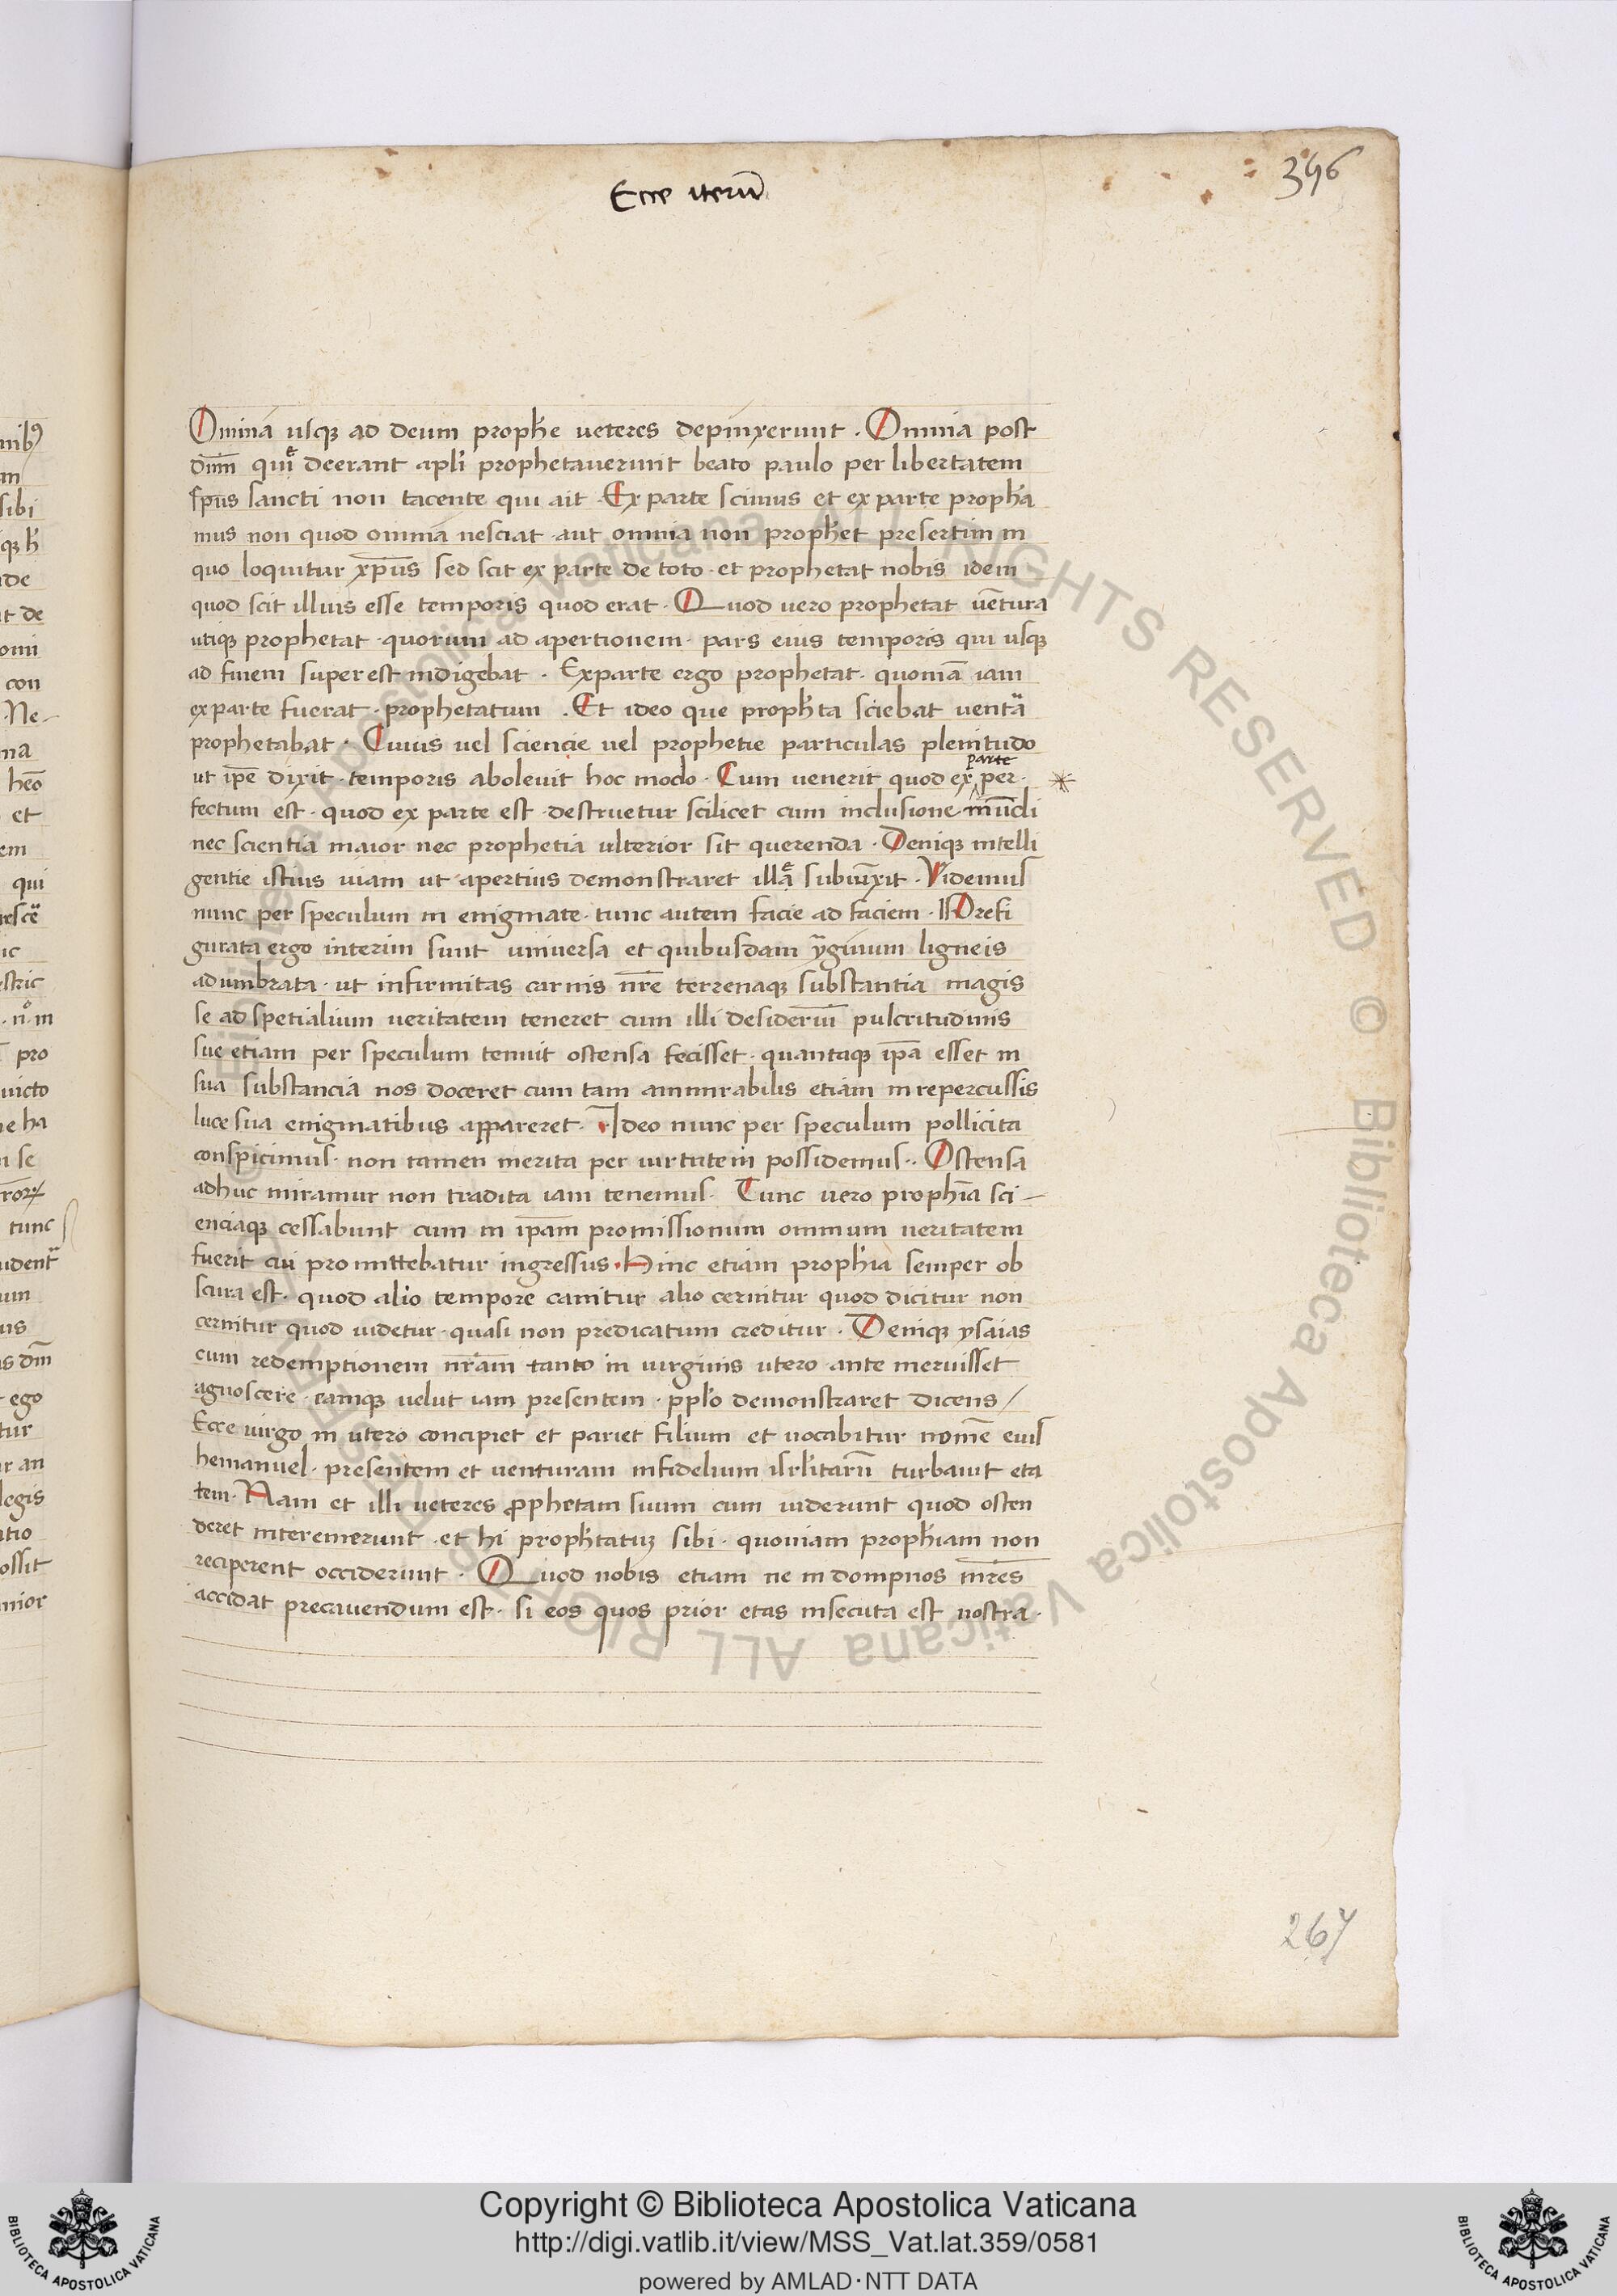 396
Ecce iterū
Omnia usqꝫ ad deum prophe ueteres depinxerunt . Omnia post
dnm que deerant apli prophetauerunt beato paulo per libertatem
spūs sancti non tacente qui ait . Ex parte scimus et ex parte propha
mus non quod omnia nesciat aut omnia non prophet presertim in
quo loquitur xp̄us sed scit ex parte de toto . et prophetat nobis idem
quod scit illius esse temporis quod erat . Quod uero prophetat uētura
utiqꝫ prophetat . quorum ad apertionem . pars eius temporis qui usqꝫ
ad finem superest indigebat . Ex parte ergo prophetat . quoniā iam
ex parte fuerat . prophetatum . Et ideo que prophta sciebat uentā
prophetabat . Cuius uel sciencie uel prophetie particulas plenitudo
ut ipē dixit . temporis aboleuit hoc modo . Cum uenerit quod ex parte per
fectum est . quod ex parte est . destruetur scilicet cum inclusione mūdi
nec scientia maior nec prophetia ulterior sit querenda . Deniqꝫ intelli
gentie istius uiam ut apertius demonstraret illā subiūxit . Videmus
nunc per speculum in enigmate . tunc autem facie ad faciem . Prefi
gurata ergo interim sunt uniuersa et quibusdam yginum ligneis
adumbrata . ut infirmitas carnis nrē terrenaqꝫ substantia magis
se ad spetialium ueritatem teneret cum illi desideriū pulcritudinis
sue etiam per speculum tenuit ostensa fecisset . quantaqꝫ ipā esset in
sua substancia nos doceret cum tam ammirabilis etiam in repercussis
luce sua enigmatibus appareret . Ideo nunc per speculum pollicita
conspicimus . non tamen merita per uirtutem possidemus . Ostensa
adhuc miramur non tradita iam tenemus . Tunc uero prophia sci-
enciaqꝫ cessabunt cum in ipām promissionum omnium ueritatem
fuerit cui promittebatur ingressus . Hinc etiam prophia semper ob
scura est . quod alio tempore canitur alio cernitur quod dicitur non
cernitur quod uidetur . quasi non predicatum creditur . Deniqꝫ ysaias
cum redemptionem nrām tanto in uirginis utero ante meruisset
agnoscere . eamqꝫ uelut iam presentem . pplo demonstraret dicens /
Ecce uirgo in utero concipiet et pariet filium et uocabitur nomē eius
hemanuel . presentem et uenturam infidelium isrlitarū turbauit eta
tem . Nam et illi ueteres prophetam suum cum uiderunt quod osten
deret interemerunt . et hi prophtatū sibi . quoniam prophiam non
reciperent occiderunt . Quod nobis etiam ne in dompnos mrēs
accidat precauendum est . si eos quos prior etas insecuta est nostra .
267
Copyright © Biblioteca Apostolica Vaticana
http://digi.vatlib.it/view/MSS_Vat.lat.359/0581
powered by AMLAD·NTT DATA
BIBLIOTECA APOSTOLICA VATICANA
BIBLIOTECA APOSTOLICA VATICANA
© Biblioteca Apostolica Vaticana ALL RIGHTS RESERVED © Biblioteca Apostolica Vaticana ALL RIGHTS RESERVED